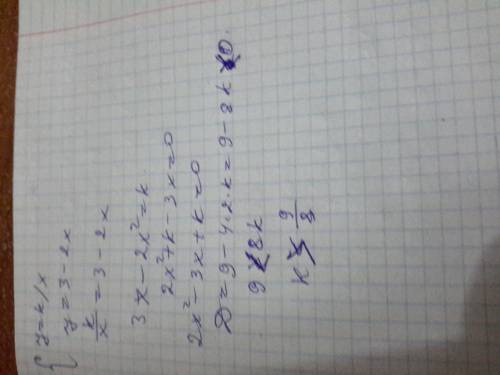 { y = k/x
y = 3 - 2x
k/x = 3 - 2x
3x - 2x² = k
2x² + k - 3x = 0
2x² - 3x + k = 0
D = 9 - 4·2·k = 9 - 8k
9 8k
k > 9/8